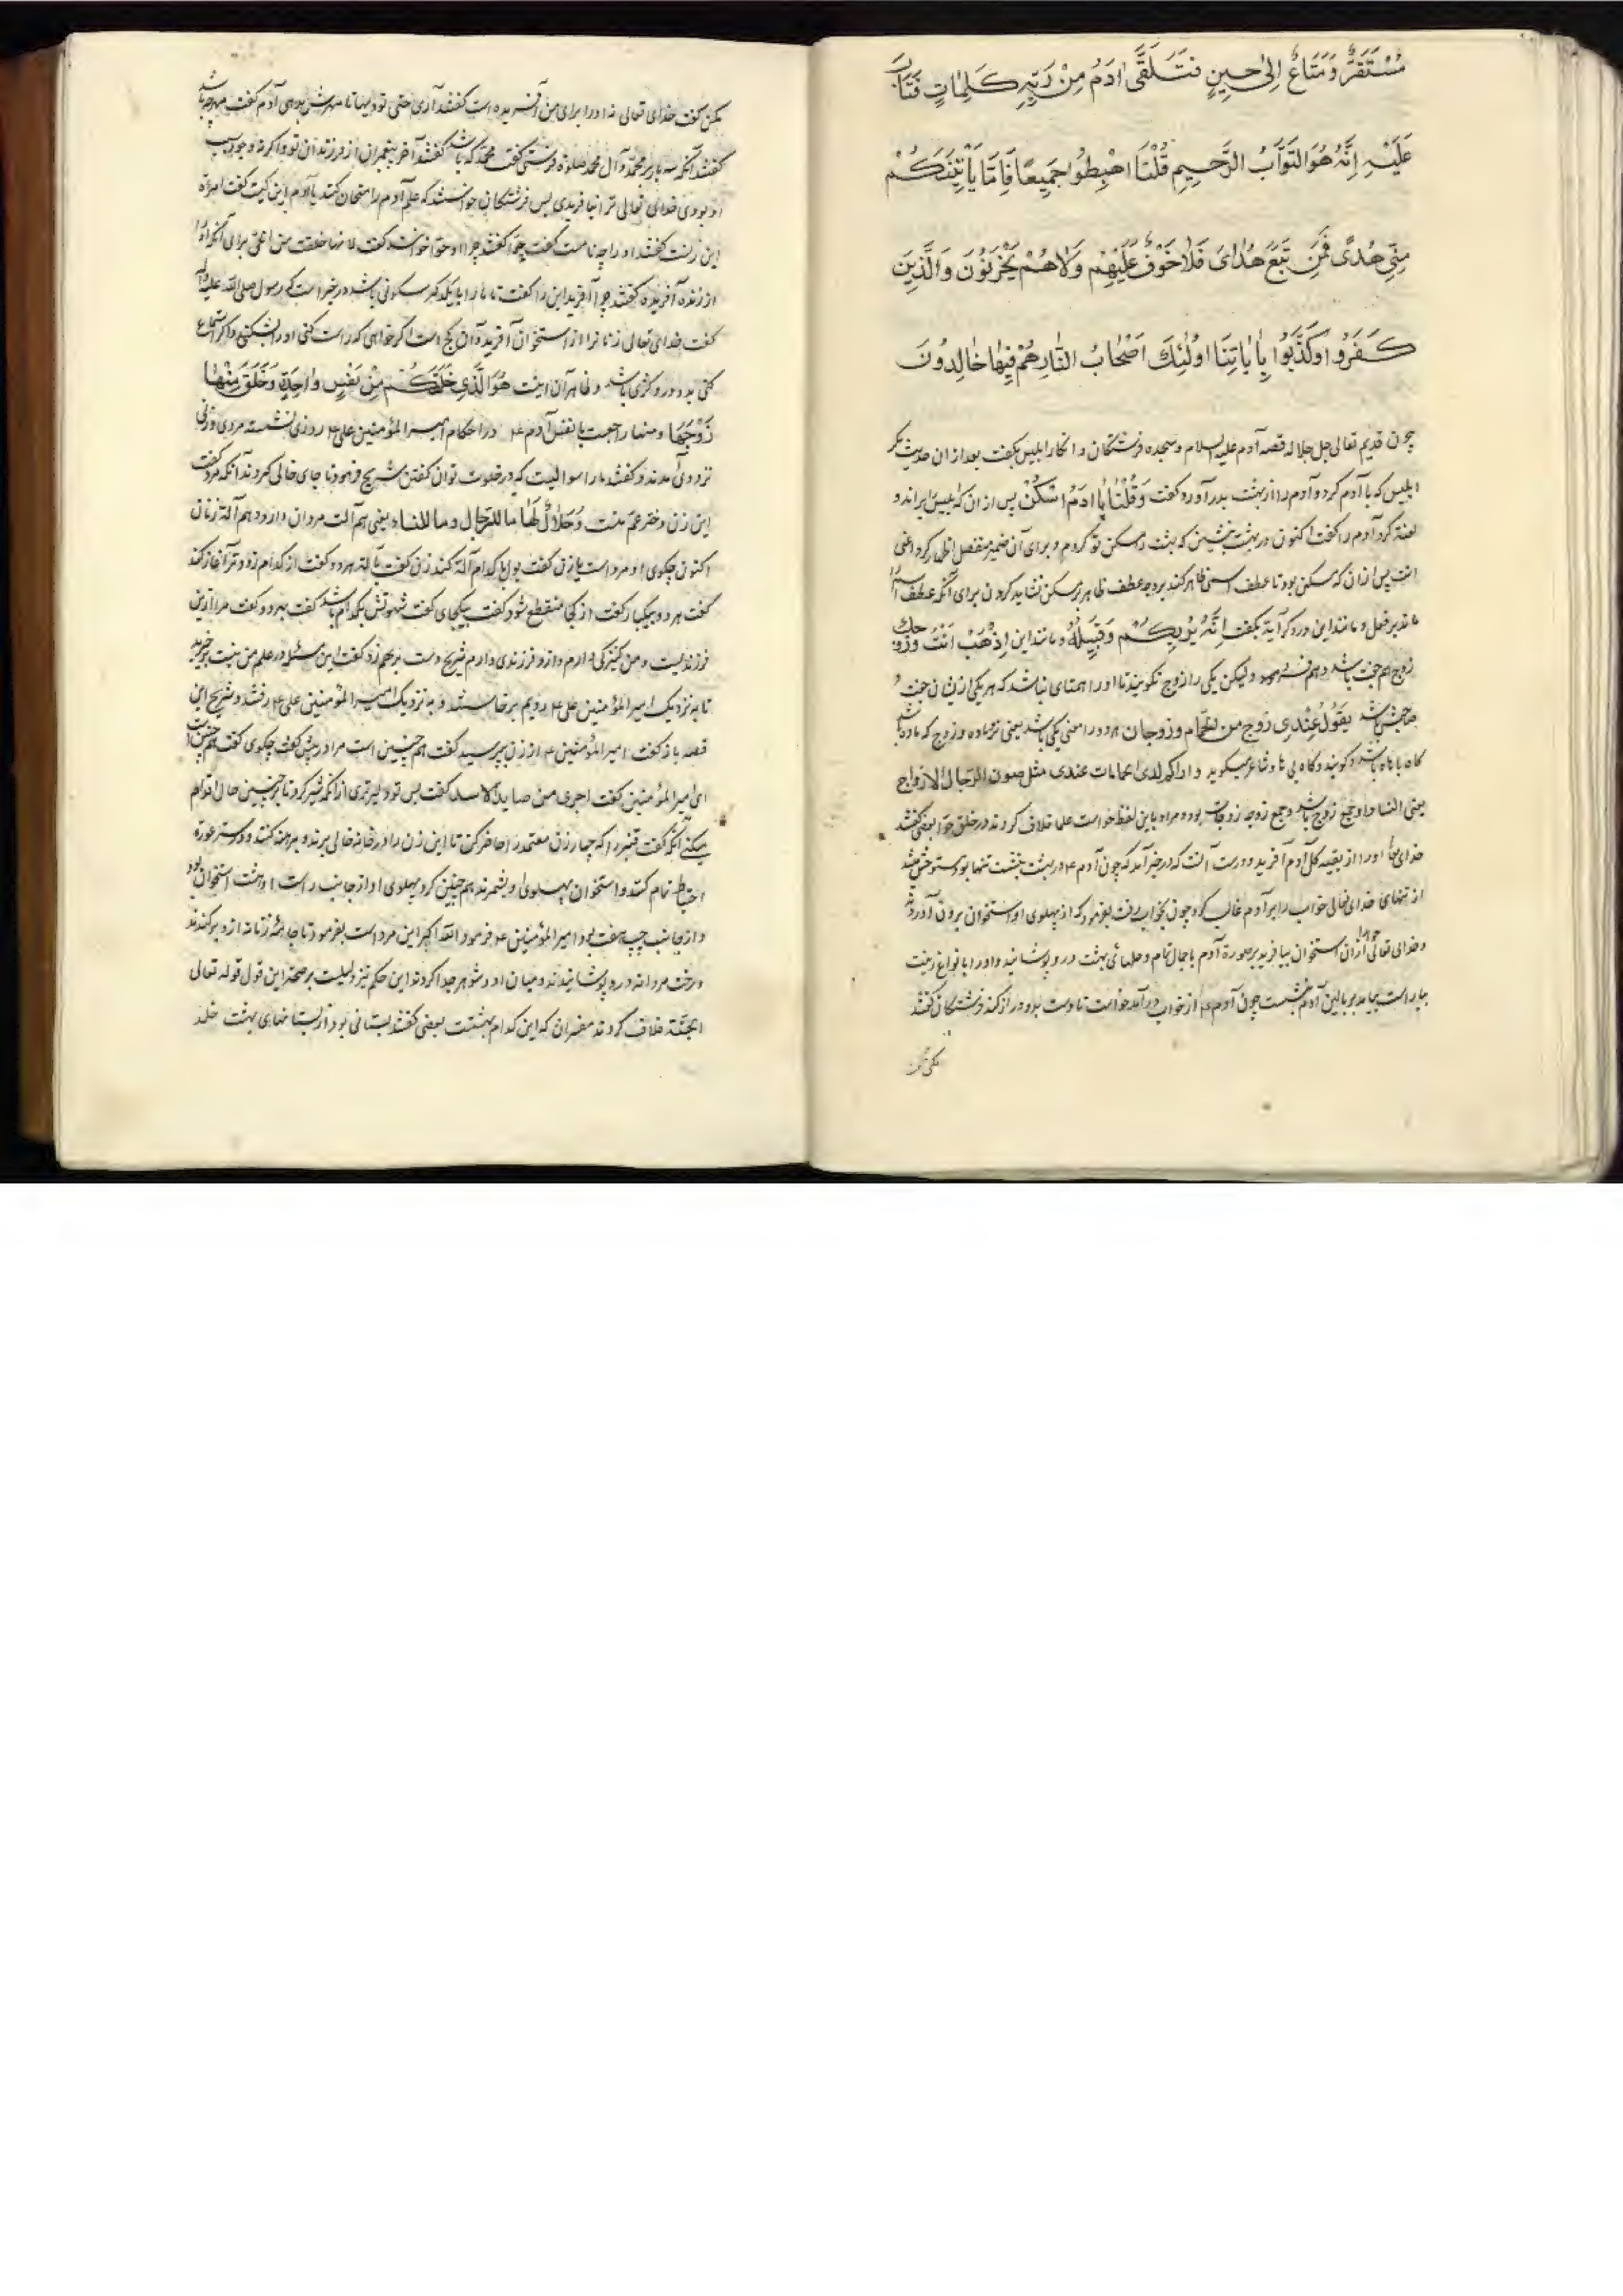 مُسْتَقَرٌّ وَمَتَاعٌ اِلىٰ حِينٍ فَتَلَقَّى اٰدَمُ مِنْ رَبِّهِ كَلِمَاتٍ فَتَابَ
عَلَيْهِ اِنَّهُ هُوَ التَّوَّابُ الرَّحِيمِ قُلْنَا اهْبِطُوا جَمِيعًا فَاِمَّا يَأْتِيَنَّكُمْ
مِنّى هُدًى فَمَن تَبَعَ هُدَاىَ فَلَا خَوْفٌ عَلَيْهِمْ وَلَا هُمْ يَحْزَنُونَ وَالَّذِينَ
كَفَرُوا وكَذَّبُوا بِاٰيَاتِنَا اوُلٰئِكَ اَصْحَابُ النَّارِ هُمْ فِيهَا خَالِدُونَ
چون قدیم تعالی جل جلاله قصه آدم علیه السلام و سجده فرشتکان و انکار ابلیس بکفت بعد از ان حدیث مکر
ابلیس که با آدم کرد و آدم را از بهشت بدر آورد کفت وَقُلْنَا يَا ادَمُ اسْكُنْ پس از ان که ابلیس را براند و
لعنة کرد آدم را کفت اکنون در بهشت بنشین که بهشت را مسکن تو کردم و برای آن ضمیر منفصل اظهار کرد اعنی
انت پس از ان که مسکن بود تا عطف اسمی ظاهر کند بر وجه عطف ظاهر بر مسکن نشاید کردن برای آنکه عطف اسم
ماند بر فعل و مانند این در دکر آیة بکفت اِنَّهُ يَرٰيكُمْ وَقَبِيلُهُ و مانند این اِذْهَبْ اَنْتَ وَزَوْجُكَ
زوج هم جفت باشد و هم فرد ولیکن یکی را زوج نکویند تا او را همتای نباشد که هر یکی از یشان جفت
صاحبش باشد يقول عِنْدِى زوج من الحمام وزوجان هر دو را معنی یکی باشد یعنی نر و ماده و زوج که ماده باشد
کاه با هاء باشد و کویند و کاه بی ها و شاعر میکوید مثل صون الرجال الازواج
یعنی النساء و ازواج جمع زوج باشد و جمع زوجه زوجات بود و مراد باین لفظ حواست علما خلاف کردند در خلق حوا بعضی کفتند
خدای تعالی او را از بقیه کل آدم آفرید و درست آنست که در خبر آمد که چون آدم ع در بهشت بنشست تنها بود مستوحش شد
از تنهای خدای تعالی خواب را بر آدم غالب کرد چون بخواب رفت بفرمود که از پهلوی او استخوان برون آوردند
و خدای تعالی حوا را ازان استخوان بیافرید بر صورة آدم با جمال تمام و حلهای بهشت در و پوشانید و او را بانواع زینت
بیاراست بیامد بر بالین آدم بنشست چون آدم ع از خواب در آمد خواست تا دست بدو دراز کند فرشتکان کفتند
مکن
مکن کفت خدای تعالی نه او را برای من آفریده است کفتند آری حتی تودیها تا مهرش بدهی آدم کفت مهر چه باشد
کفتند آنکه سه بار بر محمد و آل محمد صلوة فرستی کفت محمد که باشد کفتند آخر پیغمبران از فرزندان تو و اکر نه وجود سبب
او بودی خدای تعالی ترا نیافریدی پس فرشتکان خواستند که علم آدم را امتحان کنند یا آدم این کیست کفت امراة
این زنست کفتند او را چه نامست کفت حوا کفتند چرا او حوا خواندی کفت لانها خلقت من الحی برای آنکه او را
از زنده آفریده کفتند چرا آفرید این را کفت تا ما را با یکدکر سکونی باشد در خبر است که رسول صلی الله علیه و آله
کفت خدای تعالی زنانرا از استخوان آفرید و آن کج است اکر خواهی که راست کنی او را بشکنی و اکر استمتاع
کنی بدو در و کژی باشد و ظاهر آن اینست هُوَ الَّذِى خَلَقَكُمْ مِنْ نَفْسٍ وٰاحِدَةٍ وَخَلَقَ مِنْهَا
زَوْجَهَا و منها راجعست با نفس آدم ع در احکام امیر المؤمنین علی ع روزی نشسته مردی و زنی
نزد وی آمدند و کفتند ما را سوالیست که در خلوت توان کفتن شریح فرمود تا جای خالی کردند آنکه مرد کفت
این زن دختر عم منست وَحَلَالٌ لَهَا مَا للرجال وما للنساء یعنی هم آلت مردان دارد و هم آلة زنان
اکنون چکوی او مرد است یا زن کفت بول با کدام آلة کند زن کفت با هر دو کفت از کدام زود تر آغاز کند
کفت هر دو بیکبار کفت از کجا منقطع شود کفت بیکجای کفت شهوتش بکدام باشد کفت بهر دو کفت مرا ازین
فرزندیست و من کنیزکی دارم و ازو فرزندی دارم شریح دست بر هم زد کفت این مسئله در علم من نیست برخیزید
تا به نزدیک امیر المؤمنین علی ع رویم برخاستند و به نزدیک امیر المؤمنین علی ع رفتند و شریح این
قصه باز کفت امیر المؤمنین ع از زن پرسید کفت هم چنین است مرا در پیش کفت چکوی کفت هم چنین است
ای امیر المؤمنین کفت اجری من صاید الاسد کفت پس تو دلیرتری از آنکه شیر کرد تا بر چنین حال اقدام
میکنی آنکه کفت قنبر را که چهار زن معتمد را حاضر کن تا این زن را در خانه خالی برند و برهنه کنند و در ستر عورة
احتیاط تمام کنند و استخوان پهلوی او بشمرند هم چنین کرد پهلوی او از جانب راست او هشت استخوان بود
و از جانب چپ هفت بود امیر المؤمنین ع فرمود الله اکبر این مرد است بفرمود تا جامهٔ زنانه ازو برکندند
و رخت مردانه در و پوشانیدند و میان او و شوهر جدا کردند این حکم نیز دلیلست بر صحة این قول قوله تعالی
الجنّة خلاف کردند مفسران که این کدام بهشتست بعضی کفتند بستانی بود از بستانهای بهشت خلد